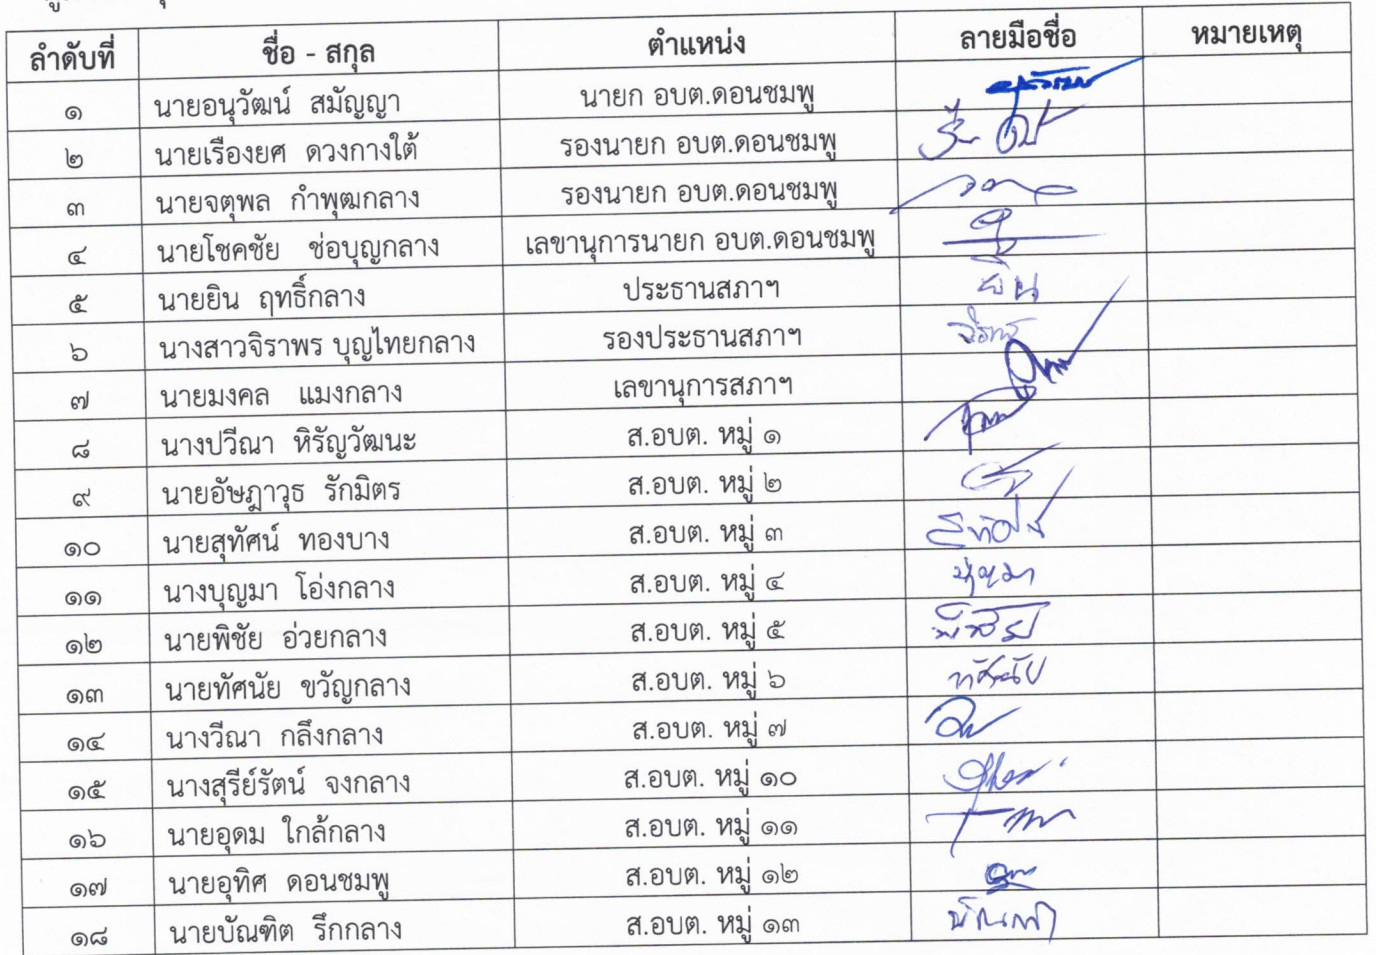 ลำดับที่ ชื่อ - สกุล ตำแหน่ง ลายมือชื่อ หมายเหตุ
๑ นายอนุวัฒน์ สมัญญา นายก อบต.ดอนชมพู
๒ นายเรืองยศ ดวงกางใต้ รองนายก อบต.ดอนชมพู
๓ นายจตุพล กำพุฒกลาง รองนายก อบต.ดอนชมพู
๔ นายโชคชัย ช่อบุญกลาง เลขานุการนายก อบต.ดอนชมพู
๕ นายยิน ฤทธิ์กลาง ประธานสภาฯ ยิน
๖ นางสาวจิราพร บุญไทยกลาง รองประธานสภาฯ
๗ นายมงคล แมงกลาง เลขานุการสภาฯ
๘ นางปวีณา หิรัญวัฒนะ ส.อบต. หมู่ ๑
๙ นายอัษฎาวุธ รักมิตร ส.อบต. หมู่ ๒
๑๐ นายสุทัศน์ ทองบาง ส.อบต. หมู่ ๓
๑๑ นางบุญมา โอ่งกลาง ส.อบต. หมู่ ๔ บุญมา
๑๒ นายพิชัย อ่วยกลาง ส.อบต. หมู่ ๕ พิชัย
๑๓ นายทัศนัย ขวัญกลาง ส.อบต. หมู่ ๖ ทัศนัย
๑๔ นางวีณา กลึงกลาง ส.อบต. หมู่ ๗
๑๕ นางสุรีย์รัตน์ จงกลาง ส.อบต. หมู่ ๑๐
๑๖ นายอุดม ใกล้กลาง ส.อบต. หมู่ ๑๑
๑๗ นายอุทิศ ดอนชมพู ส.อบต. หมู่ ๑๒
๑๘ นายบัณฑิต รึกกลาง ส.อบต. หมู่ ๑๓